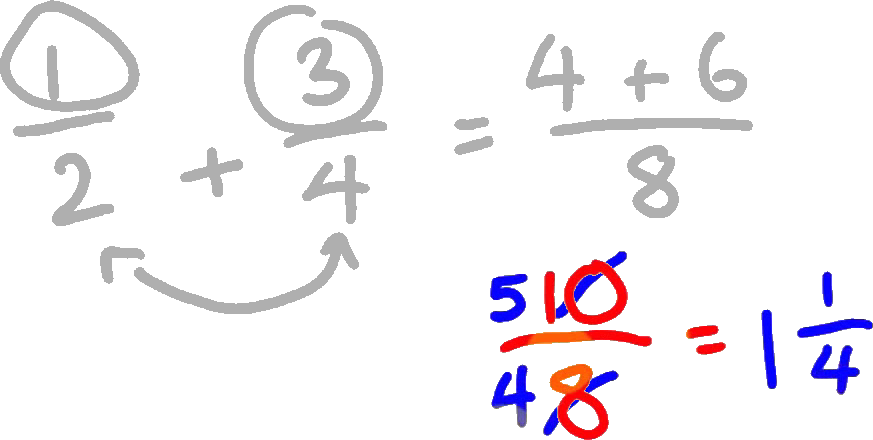 1/2 + 3/4 = (4 + 6)/8
5 10/4 8 = 1 1/4